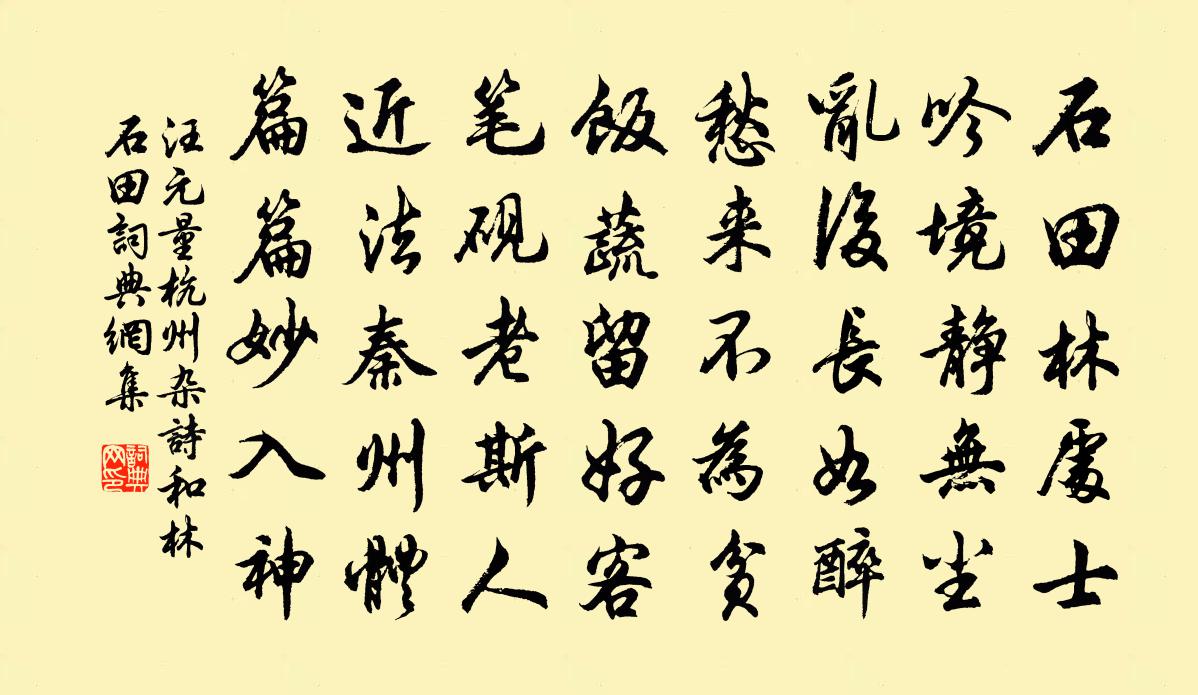 石田林處士
吟境静無尘
亂後長如醉
愁来不為貧
飯蔬留好客
笔硯老斯人
近法秦州體
篇篇妙入神
汪元量杭州杂詩和林
石田詞典網集
詞典
网印